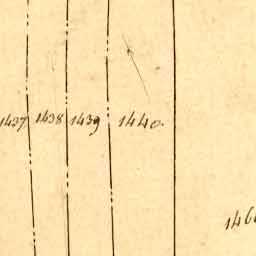 1437 1438 1439 1440.